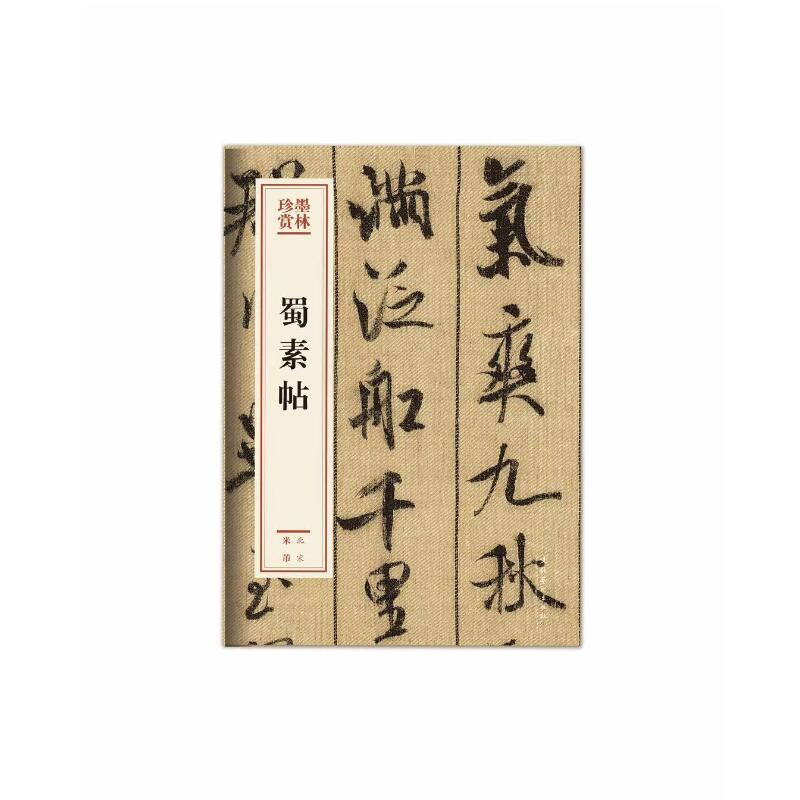 氣爽九秋
滿泛船千里
墨林
珍赏
蜀素帖
北宋
米芾